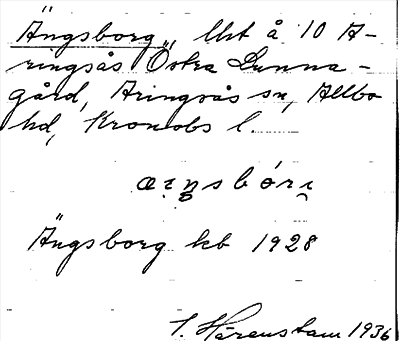 Ängsborg, Ust å 10 A-
ringsås Östra Lunna-
gård, Aringsås sn, Allbo
hd, Kronobs l.
æŋsbórı
Ängsborg kb 1928
I. Härenstam 1936